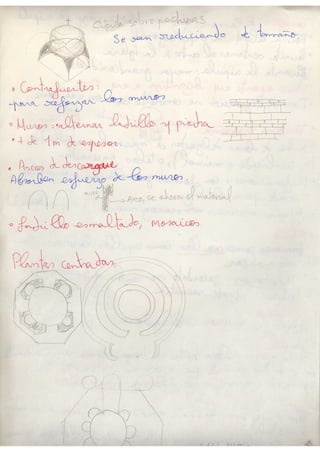 Cúpula sobre pechinas
Se van reduciendo de tamaño
• Contrafuertes:
para reforzar los muros
• Muros: alternar ladrillo y piedra
• + de 1m de espesor.
• Arcos de descargue
Absorben esfuerzo de los muros.
→ Arco, se ahorra el material
• Ladrillo esmaltado, mosaicos
Plantas centradas: